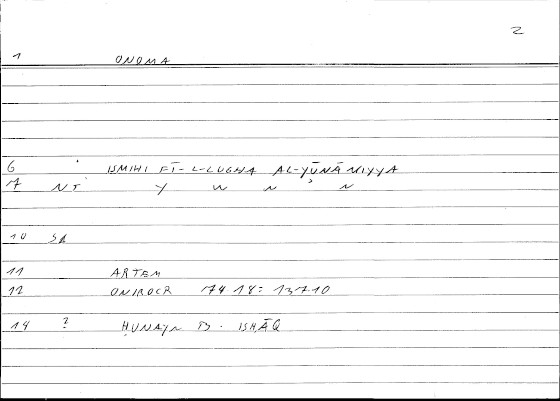 2
1 ONOMA
6 ISMIHI FĪ-L-LUGHA AL-YŪNĀNIYYA
7 NT Y W N ʾ N
10 SA
11 ARTEM
12 ONIROCR 174 18 = 137 10
14 ? ḤUNAYN B. ISḤĀQ